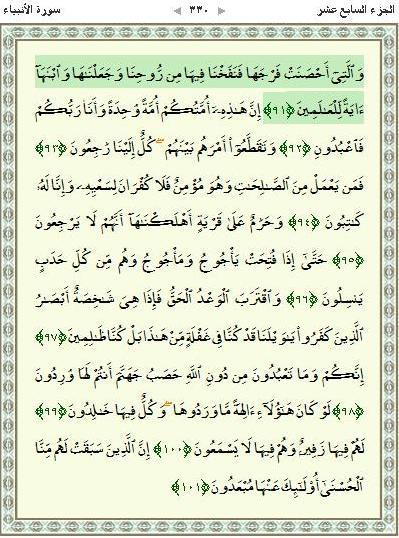 الجزء السابع عشر ◀ ٣٣٠ ▶ سورة الأنبياء
وَٱلَّتِىٓ أَحْصَنَتْ فَرْجَهَا فَنَفَخْنَا فِيهَا مِن رُّوحِنَا وَجَعَلْنَٰهَا وَٱبْنَهَآ
ءَايَةً لِّلْعَٰلَمِينَ ﴿٩١﴾ إِنَّ هَٰذِهِۦٓ أُمَّتُكُمْ أُمَّةً وَٰحِدَةً وَأَنَا۠ رَبُّكُمْ
فَٱعْبُدُونِ ﴿٩٢﴾ وَتَقَطَّعُوٓا۟ أَمْرَهُم بَيْنَهُمْ ۖ كُلٌّ إِلَيْنَا رَٰجِعُونَ ﴿٩٣﴾
فَمَن يَعْمَلْ مِنَ ٱلصَّٰلِحَٰتِ وَهُوَ مُؤْمِنٌ فَلَا كُفْرَانَ لِسَعْيِهِۦ وَإِنَّا لَهُۥ
كَٰتِبُونَ ﴿٩٤﴾ وَحَرَٰمٌ عَلَىٰ قَرْيَةٍ أَهْلَكْنَٰهَآ أَنَّهُمْ لَا يَرْجِعُونَ
﴿٩٥﴾ حَتَّىٰٓ إِذَا فُتِحَتْ يَأْجُوجُ وَمَأْجُوجُ وَهُم مِّن كُلِّ حَدَبٍ
يَنسِلُونَ ﴿٩٦﴾ وَٱقْتَرَبَ ٱلْوَعْدُ ٱلْحَقُّ فَإِذَا هِىَ شَٰخِصَةٌ أَبْصَٰرُ
ٱلَّذِينَ كَفَرُوا۟ يَٰوَيْلَنَا قَدْ كُنَّا فِى غَفْلَةٍ مِّنْ هَٰذَا بَلْ كُنَّا ظَٰلِمِينَ ﴿٩٧﴾
إِنَّكُمْ وَمَا تَعْبُدُونَ مِن دُونِ ٱللَّهِ حَصَبُ جَهَنَّمَ أَنتُمْ لَهَا وَٰرِدُونَ
﴿٩٨﴾ لَوْ كَانَ هَٰٓؤُلَآءِ ءَالِهَةً مَّا وَرَدُوهَا ۖ وَكُلٌّ فِيهَا خَٰلِدُونَ ﴿٩٩﴾
لَهُمْ فِيهَا زَفِيرٌ وَهُمْ فِيهَا لَا يَسْمَعُونَ ﴿١٠٠﴾ إِنَّ ٱلَّذِينَ سَبَقَتْ لَهُم مِّنَّا
ٱلْحُسْنَىٰٓ أُو۟لَٰٓئِكَ عَنْهَا مُبْعَدُونَ ﴿١٠١﴾